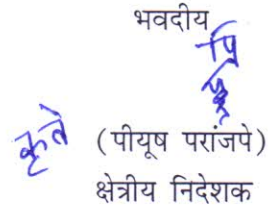 भवदीय
कृते (पीयूष परांजपे)
क्षेत्रीय निदेशक